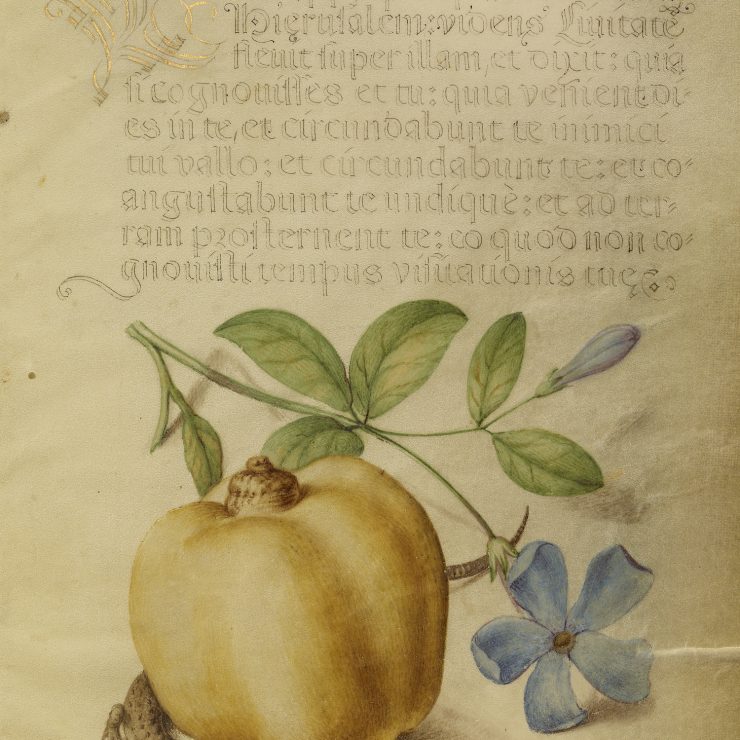 Hierusalem: videns Civitatē
fleuit super illam, et dixit: quia
si cognouisses et tu: quia venient di-
es in te, et circundabunt te inimici
tui vallo: et circundabunt te: et co-
angustabunt te undiquè: et ad ter-
ram prosternent te: eo quod non co-
gnouisti tempus visitationis tuę